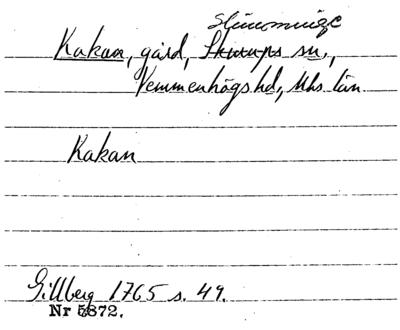 Slimminge
Kakan, gård, Skurups sn.,
Vemmenhögs hd, Mhs län.
Kakan
Gillberg 1765 s. 49.
Nr 5872.